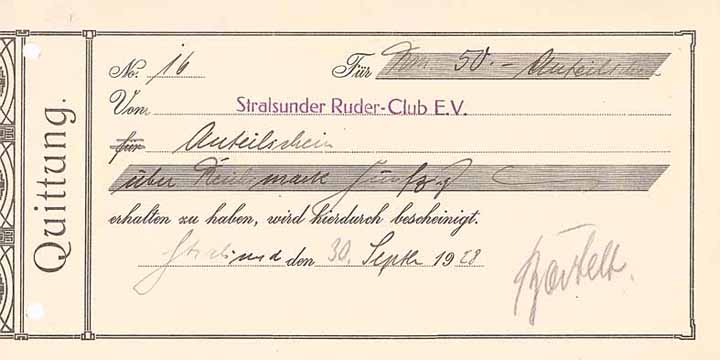 Quittung.
No. 16 Für Rm 50.- Anteilschein
Von Stralsunder Ruder-Club E.V.
für Anteilschein
über Reichsmark Fünfzig
erhalten zu haben, wird hierdurch bescheinigt.
Stralsund den 30. Septbr 1928